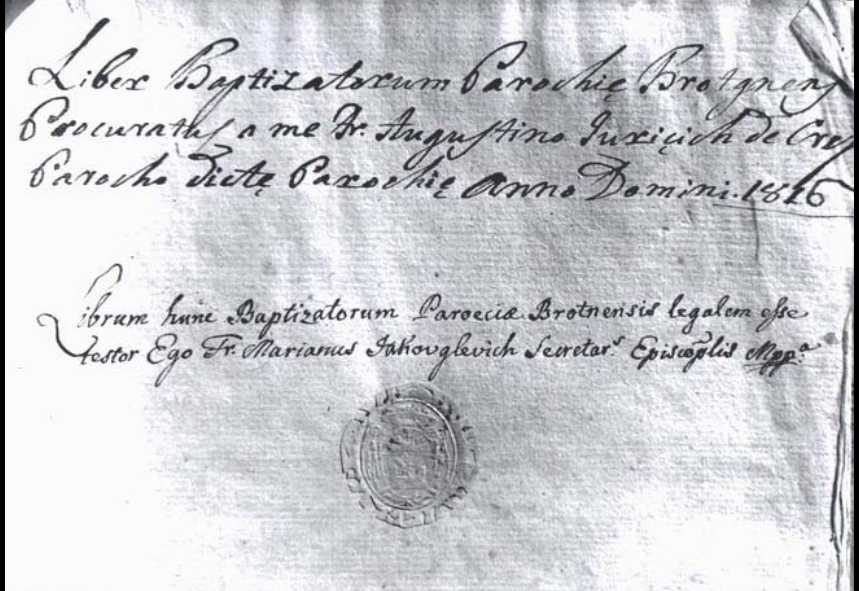 Liber Baptizatorum Parochię Brotgnens
Procuratus a me Fr. Augustino Juricich de
Parocho dictę Parochię Anno Domini. 1816
Librum hunc Baptizatorum Paroeciæ Brotnensis legalem esse
testor Ego Fr. Marianus Jakovglevich Secretar.s Episcoplis Mppa.